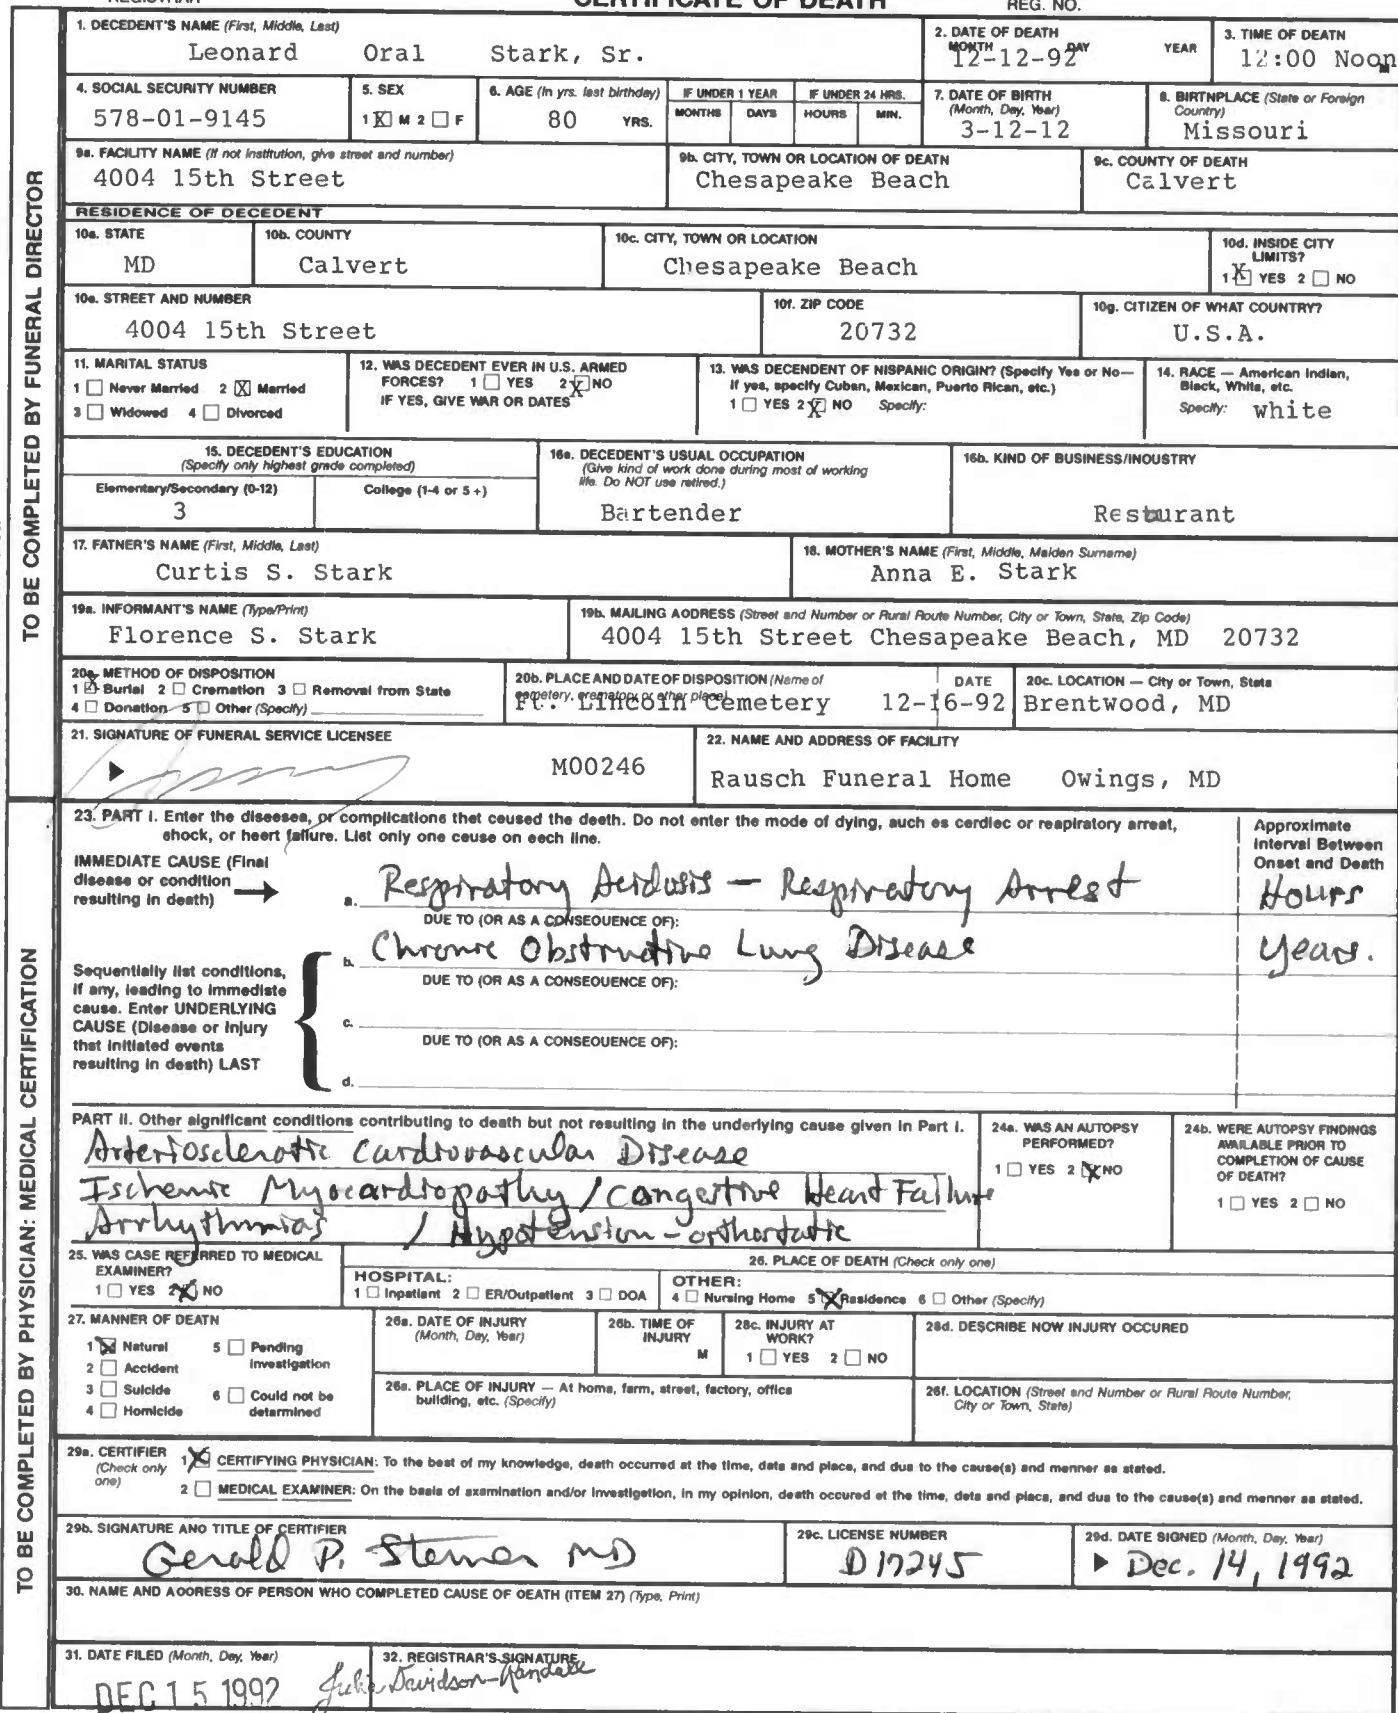 REGISTRAR CERTIFICATE OF DEATH REG. NO.
TO BE COMPLETED BY FUNERAL DIRECTOR
1. DECEDENT'S NAME (First, Middle, Last)
Leonard Oral Stark, Sr.
2. DATE OF DEATH
MONTH DAY YEAR
12-12-92
3. TIME OF DEATH
12:00 Noon
M
4. SOCIAL SECURITY NUMBER
578-01-9145
5. SEX
1 X M 2 F
6. AGE (In yrs. last birthday)
80 YRS.
IF UNDER 1 YEAR
MONTHS DAYS
IF UNDER 24 HRS.
HOURS MIN.
7. DATE OF BIRTH
(Month, Day, Year)
3-12-12
8. BIRTNPLACE (State or Foreign
Country)
Missouri
9a. FACILITY NAME (If not institution, give street and number)
4004 15th Street
9b. CITY, TOWN OR LOCATION OF DEATH
Chesapeake Beach
9c. COUNTY OF DEATH
Calvert
RESIDENCE OF DECEDENT
10a. STATE
MD
10b. COUNTY
Calvert
10c. CITY, TOWN OR LOCATION
Chesapeake Beach
10d. INSIDE CITY
LIMITS?
1 X YES 2 NO
10e. STREET AND NUMBER
4004 15th Street
10f. ZIP CODE
20732
10g. CITIZEN OF WHAT COUNTRY?
U.S.A.
11. MARITAL STATUS
1 Never Married 2 X Married
3 Widowed 4 Divorced
12. WAS DECEDENT EVER IN U.S. ARMED
FORCES? 1 YES 2 X NO
IF YES, GIVE WAR OR DATES
13. WAS DECENDENT OF NISPANIC ORIGIN? (Specify Yes or No—
If yes, specify Cuban, Mexican, Puerto Rican, etc.)
1 YES 2 X NO Specify:
14. RACE — American Indian,
Black, White, etc.
Specify: white
15. DECEDENT'S EDUCATION
(Specify only highest grade completed)
Elementary/Secondary (0-12) College (1-4 or 5+)
3
16a. DECEDENT'S USUAL OCCUPATION
(Give kind of work done during most of working
life. Do NOT use retired.)
Bartender
16b. KIND OF BUSINESS/INOUSTRY
Resturant
17. FATNER'S NAME (First, Middle, Last)
Curtis S. Stark
18. MOTHER'S NAME (First, Middle, Maiden Surname)
Anna E. Stark
19a. INFORMANT'S NAME (Type/Print)
Florence S. Stark
19b. MAILING AODRESS (Street and Number or Rural Route Number, City or Town, State, Zip Code)
4004 15th Street Chesapeake Beach, MD 20732
20a. METHOD OF DISPOSITION
1 X Burial 2 Cremation 3 Removal from State
4 Donation 5 Other (Specify)
20b. PLACE AND DATE OF DISPOSITION (Name of
cemetery, crematory or other place)
DATE
Ft. Lincoln Cemetery 12-16-92
20c. LOCATION — City or Town, State
Brentwood, MD
21. SIGNATURE OF FUNERAL SERVICE LICENSEE
M00246
22. NAME AND ADDRESS OF FACILITY
Rausch Funeral Home Owings, MD
TO BE COMPLETED BY PHYSICIAN: MEDICAL CERTIFICATION
23. PART I. Enter the diseesea, or complications thet ceused the deeth. Do not enter the mode of dying, auch es cerdiec or reapiratory arreat,
ehock, or heert failure. Liet only one ceuse on eech line.
Approximate
Interval Between
Onset and Death
IMMEDIATE CAUSE (Final
disease or condition
resulting in death)
a. Respiratory Acidosis — Respiratory Arrest Hours
DUE TO (OR AS A CONSEOUENCE OF):
b. Chronic Obstructive Lung Disease Years.
DUE TO (OR AS A CONSEOUENCE OF):
Sequentially list conditions,
if any, leading to immediate
cause. Enter UNDERLYING
CAUSE (Disease or Injury
that initiated events
resulting in death) LAST
c.
DUE TO (OR AS A CONSEOUENCE OF):
d.
PART II. Other aignificant conditions contributing to death but not resulting in the underlying cause given in Part I.
Arteriosclerotic Cardiovascular Disease
Ischemic Myocardiopathy / Congestive Heart Failure
Arrhythmias / Hypotension - orthostatic
24a. WAS AN AUTOPSY
PERFORMED?
1 YES 2 X NO
24b. WERE AUTOPSY FINDINGS
AVAILABLE PRIOR TO
COMPLETION OF CAUSE
OF DEATH?
1 YES 2 NO
25. WAS CASE REFERRED TO MEDICAL
EXAMINER?
1 YES 2 X NO
26. PLACE OF DEATH (Check only one)
HOSPITAL:
1 Inpatient 2 ER/Outpatient 3 DOA
OTHER:
4 Nursing Home 5 X Residence 6 Other (Specify)
27. MANNER OF DEATH
1 X Natural 5 Pending
Investigation
2 Accident
3 Suicide 6 Could not be
determined
4 Homicide
26a. DATE OF INJURY
(Month, Day, Year)
26b. TIME OF
INJURY
M
28c. INJURY AT
WORK?
1 YES 2 NO
28d. DESCRIBE NOW INJURY OCCURED
26a. PLACE OF INJURY — At homa, farm, street, factory, offica
building, etc. (Specify)
26f. LOCATION (Street and Number or Rural Route Number,
City or Town, State)
29a. CERTIFIER
(Check only
one)
1 X CERTIFYING PHYSICIAN: To the best of my knowledge, death occurred at the time, data and place, and dua to the cause(s) and menner as stated.
2 MEDICAL EXAMINER: On the basis of axamination and/or Investigetion, in my opinion, death occured et the time, deta and placa, and dua to the cause(s) and menner aa stated.
29b. SIGNATURE ANO TITLE OF CERTIFIER
Gerald P. Sterner MD
29c. LICENSE NUMBER
D17245
29d. DATE SIGNED (Month, Day, Year)
Dec. 14, 1992
30. NAME AND AOORESS OF PERSON WHO COMPLETED CAUSE OF OEATH (ITEM 27) (Type, Print)
31. DATE FILED (Month, Day, Year)
DEC 15 1992
32. REGISTRAR'S SIGNATURE
Julia Davidson-Randall